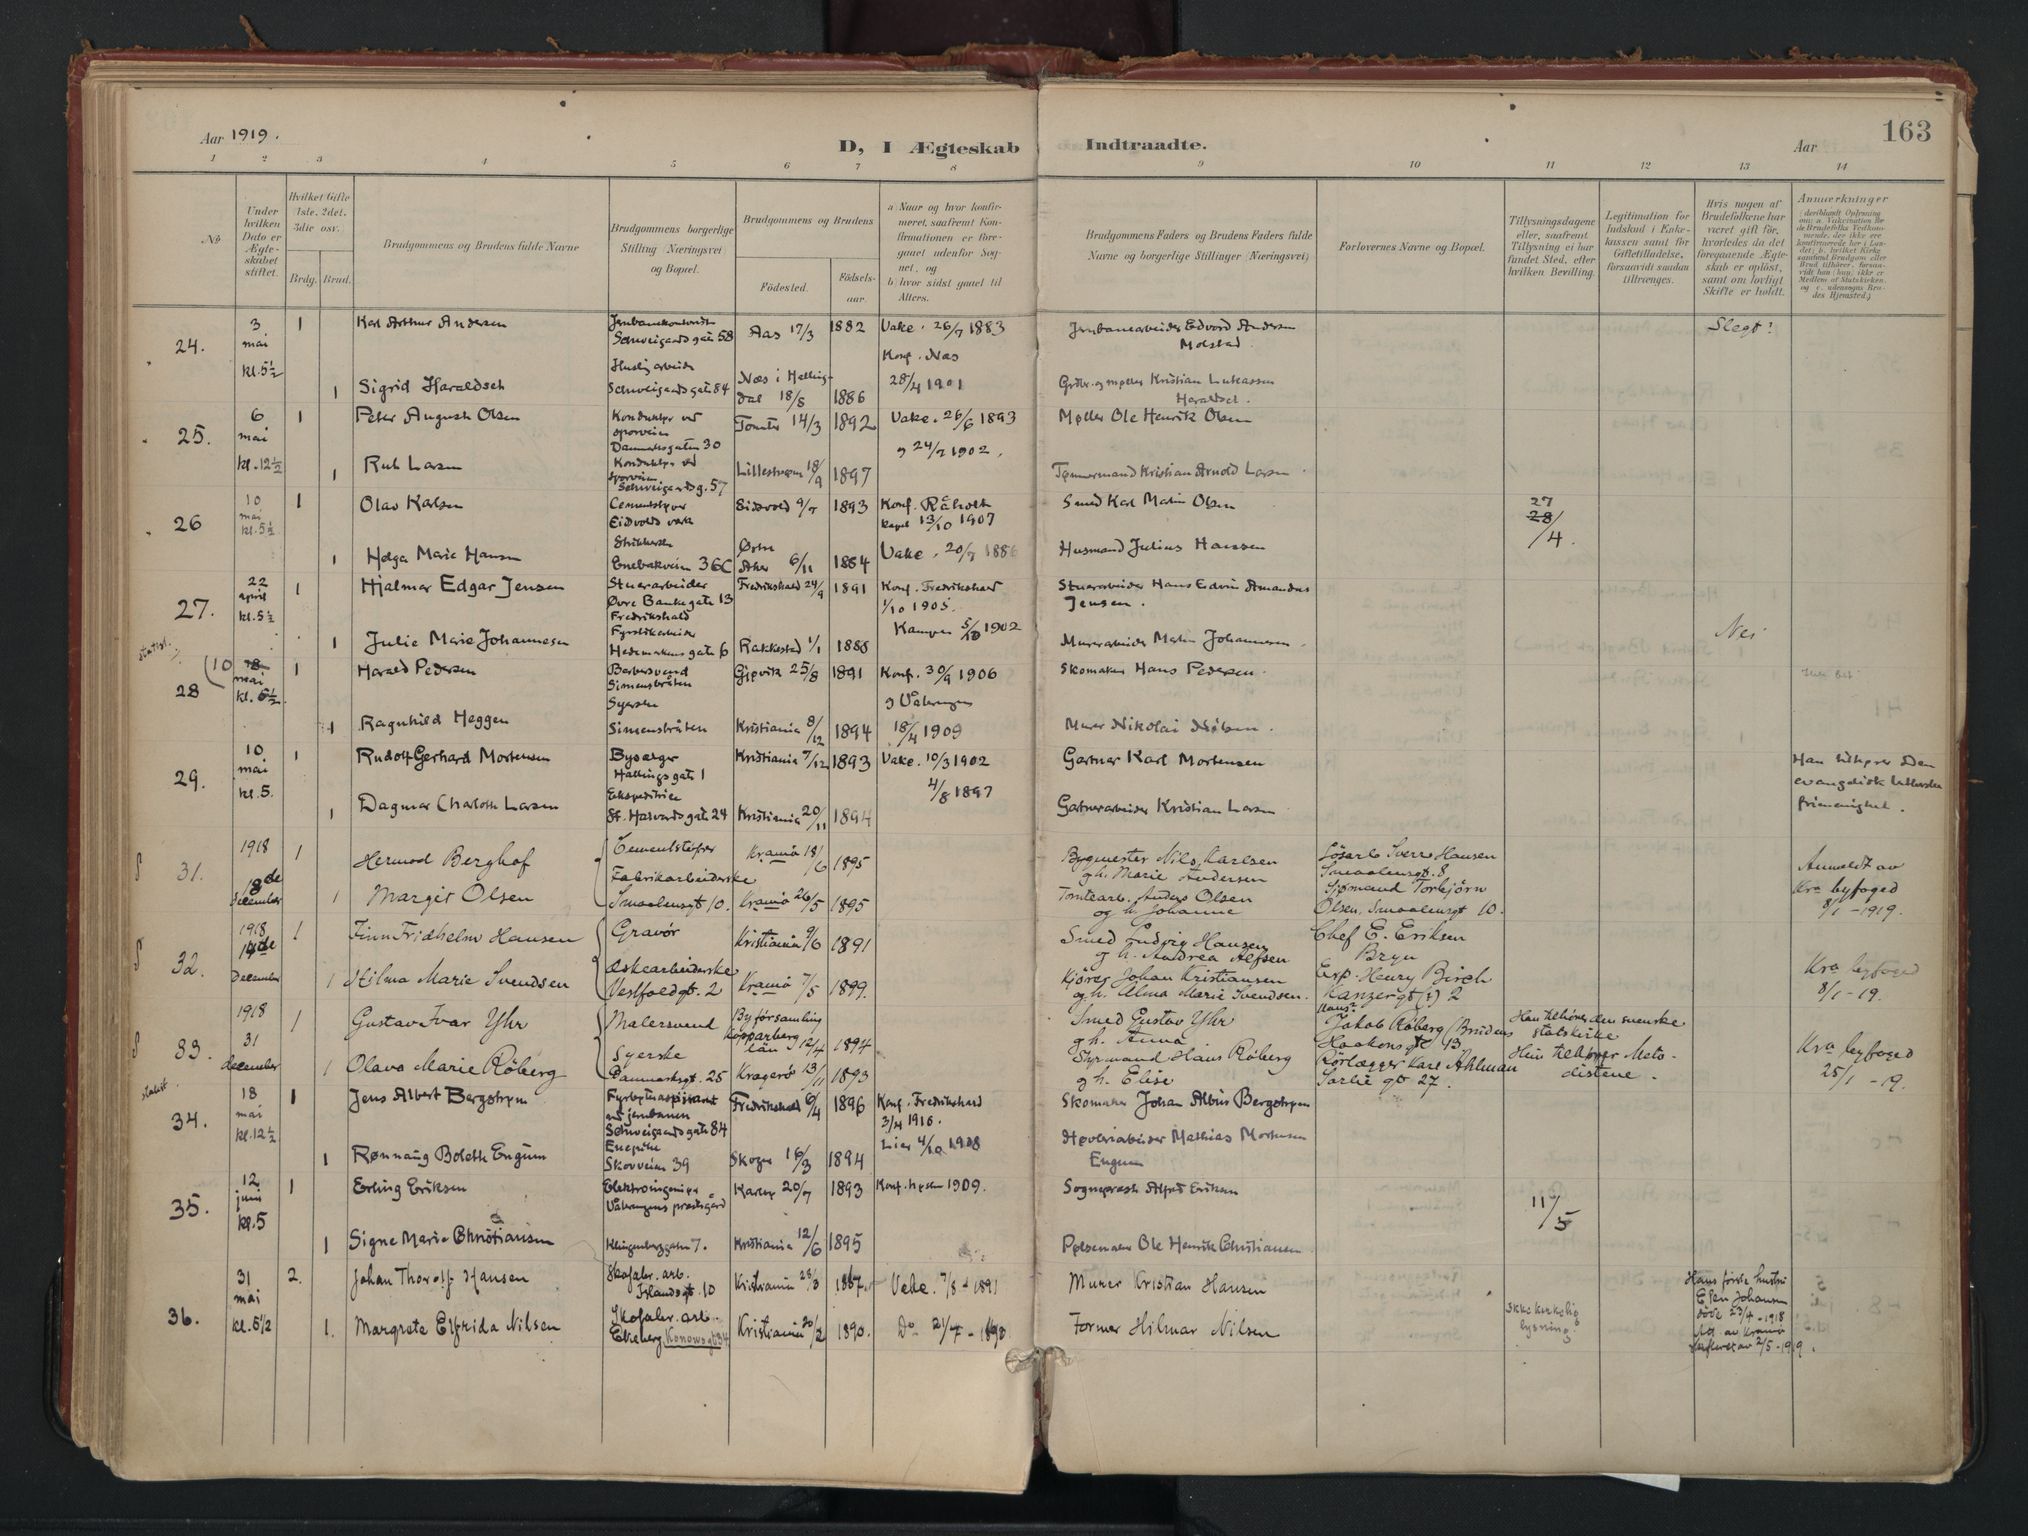 Aar 1919.
D, I Ægteskab Indtraadte.
Aar
163
1 2 3 4 5 6 7 8 9 10 11 12 13 14
No
Under hvilken Dato er Ægteskabet stiftet.
Hvilket Gifte 1ste, 2det, 3die osv.
Brdg. Brud.
Brudgommens og Brudens fulde Navne
Brudgommens borgerlige Stilling (Næringsvei) og Bopæl.
Brudgommens og Brudens
Fødested.
Fødselsaar.
a Naar og hvor konfirmeret, saafremt Konfirmationen er foregaaet udenfor Sognet, og
b hvor sidst gaaet til Alters.
Brudgommens Faders og Brudens Faders fulde Navne og borgerlige Stillinger (Næringsvei)
Forlovernes Navne og Bopæl.
Tillysningsdagene eller, saafremt Tillysning ei har fundet Sted, efter hvilken Bevilling.
Legitimation for Indskud i Enkekassen samt for Giftetilladelse, forsaavidt saadan tiltrænges.
Hvis nogen af Brudefolkene har været gift før, hvorledes da det foregaaende Ægteskab er opløst, samt om lovligt Skifte er holdt.
Anmærkninger
24. 3 mai kl. 5½ 1 Karl Arthur Andersen
Schweigaards gate 58 Aas 17/3 1882 Vake. 26/7 1883
Jernbanearbeider Edvard Andersen Molstad
Slegt?
1 Sigrid Haraldset
Schweigaards gate 84 Næs i Hallingdal 18/8 1886 Konf. Næs 28/4 1901
Kristian Lukassen Haraldset.
25. 6 mai kl. 12½ 1 Peter August Olsen
Konduktør ved sporveien Danmarksgaten 30 Tomter 14/3 1892 Vake. 26/6 1893
Møller Ole Henrik Olsen
1 Ruth Larsen
Konduktør ved sporveien Schweigaardsg. 57 Lillestrøm 18/9 1897 24/7 1902.
Tømmermand Kristian Arnold Larsen
26 10 mai kl. 5½ 1 Olav Karlsen
Cementstøper Eidsvolds verk Eidsvold 9/7 1893 Konf. Råholt kapel 13/10 1907
Smed Karl Martin Olsen
27 28/4.
1 Helga Marie Hansen
Enebakveien 36C Østre Aker 6/11 1884 Vake. 20/7 1886
Husmand Julius Hanssen
27. 22 april kl. 5½ 1 Hjalmar Edgar Jensen
Stuerarbeider Øvre Bankegate 13 Fredrikshald Fredrikshald 24/9 1891 Konf. Fredrikshald 1/10 1905.
Stuerarbeider Hans Edvin Amandus Jensen.
1 Julie Marie Johannesen
Fyrstikarbeider Hedemarkens gate 6 Rakkestad 1/1 1888 Kampen 5/10 1902
Murerarbeider Martin Johannesen.
Nei
28 10 18 mai kl. 6½ 1 Harald Pedersen
Barbersvend Simensbråten Gjøvik 25/8 1891 Konf. 30/9 1906
Skomaker Hans Pedersen.
1 Ragnhild Heggen
Syerske Simensbråten Kristiania 8/12 1894 Vålerengen 18/4 1909
Murer Nikolai
29. 10 mai kl. 5. 1 Rudolf Gerhard Mortensen
Hallings gate 1 Kristiania 7/12 1893 Vake. 10/3 1902
Gartner Karl Mortensen
Han tilhører Den evangelisk lutherske frimenighet.
1 Dagmar Charlotte Larsen
Ekspeditrice St. Halvards gate 24 Kristiania 20/11 1894 4/8 1897
Gartnerarbeider Kristian Larsen
31. 1918 18de December 1 Hermod Berghof
Cementstøper Kraniö 18/6 1895
Bygmester Nils Karlsen g h. Marie Andersen
Løsarb. Sverre Hansen Smaalensgt. 8
Anmeldt av Kra byfoged 8/1 - 1919.
1 Margit Olsen
Fabrikarbeiderske Smaalensgt 10. 26/5 1895
Tomtearb. Anders Olsen og h. Johanne
Sjømand Torbjörn Olsen, Smaalensgt 10.
32. 1918 14de December 1 Finn Fridhelm Hansen
Gravör Kristiania 9/6 1891
Smed Ludvig Hansen g h. Andrea Alfsen
Chef E. Eriksen Bryn
Kra byfoged 8/1 - 19.
1 Hilma Marie Svendsen
Æskearbeiderske Vestfoldgt. 2 7/5 1899.
Kjörer Johan Kristiansen og h. Alma Marie Svendsen.
Exp. Henry Birch
33. 1918 31 december 1 Gustav Ivar Yhr
Malersvend By församling Kopparberg län 12/4 1894
Smed Gustav Yhr g h. Anna
Jakob Röberg (Brudens Haakons gt 13
Han tilhörer den svenske statskirke
Kra byfoged 25/1 - 19.
1 Olava Marie Röberg
Syerske Danmarksgt. 25 Kragerö 13/11 1893
Styrmand Hans Röberg g h. Elise
Rörlægger Karl Ahlman Sarlie gt 27.
Hun tilhörer Metodistene.
34. 18 mai kl. 12½ 1 Jens Albert Bergstrøm
Fyrbøteraspirant ved jernbanen Schweigaards gate 84 Fredrikshald 6/4 1896 Konf. Fredrikshald 3/4 1910.
Skomaker Johan Albin Bergstrøm
1 Rønnaug Bolette Engum
Skovveien 39 Skoger 16/3 1894 Lier 4/10 1908
Høvleriarbeider Mathias Mortensen Engum
35. 12 juni kl. 5 1 Erling Eriksen
Elektroingeniør Vålerengens prestegård Karlsø 20/7 1893 1909.
Sogneprest Alfred Eriksen
11/5
1 Signe Marie Christiansen
Klingenberggaten 7. Kristiania 12/6 1895
Pølsemaker Ole Henrik Christiansen
36. 31 mai kl. 5 1/2 2. Johan Thorolf Hansen
Skofabr. arb. Islandsgt. 10 Kristiania 28/3 1867. Vake. 7/8 - 1891
Murer Kristian Hansen
Ikke kirkelig lysning.
Hans første hustru Ellen Johansen døde 23/4 - 1918
1. Margrete Elfrida Nilsen
Skofabr. arb. Ekeberg Konowsgt 34 Kristiania 20/2 1890. Do 21/7 - 1890
Former Hilmar Nilsen